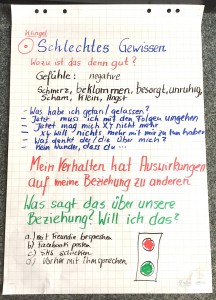 Klingel
Schlechtes Gewissen
Wozu ist das denn gut?
Gefühle: negative
Schmerz, beklommen, besorgt, unruhig,
Scham, Klein, Angst
- Was habe ich getan/gelassen?
- Jetzt muss ich mit den Folgen umgehen
- Jetzt mag mich XY nicht mehr
- XY will nichts mehr mit mir zu tun haben
- Was denkt der/die über mich?
- Kein Wunder, dass du ...
Mein Verhalten hat Auswirkungen
auf meine Beziehung zu anderen.
Was sagt das über unsere
Beziehung? Will ich das?
a.) mit Freundin besprechen
b) Facebook posten
c) SMS schicken
d) Vorher mit Ihm sprechen